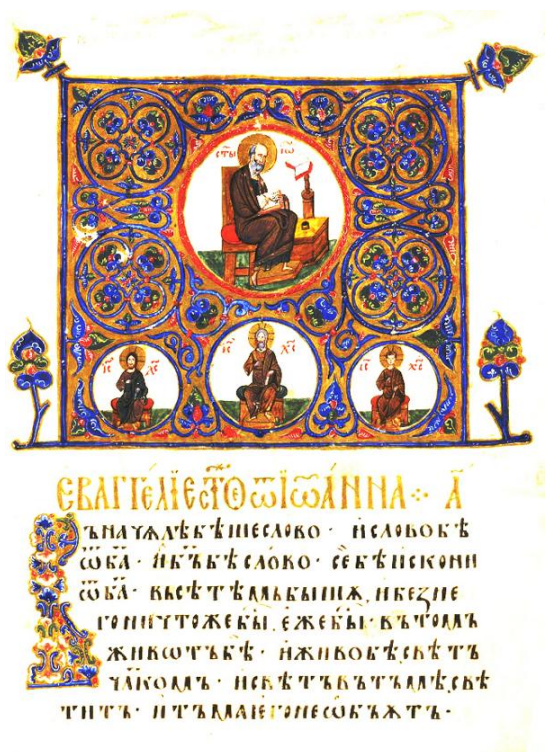 СТЫ ІѠ
ІС ХС ІС ХС ІС ХС
ЕВАГГЕЛІЕ СТОЕ Ѿ ІѠАННА ⁘ А҃
ВЪНАЧАЛѢ БѢШЕ СЛОВО · И СЛОВО БѢ
Ѿ БА҃ · И БЪ҃ БѢ СЛОВО · СЕ БѢ ИСКОНИ
Ѿ БА҃ · ВЬСѢ ТѢМЬ БЫШѦ, И БЕЗ НЕ
ГО НИЧТОЖЕ БЫ, ЕЖЕ БЫ · В ТОМЬ
ЖИВѠТЬ БѢ · И ЖИВО БѢ СВѢТЬ
ЧЛ҃КОМЬ · И СВѢТЬ В ТЪМѢ СВѢ
ТИТЬ · И ТЪМА ЕГО НЕ ѠБЪѦТЬ ·